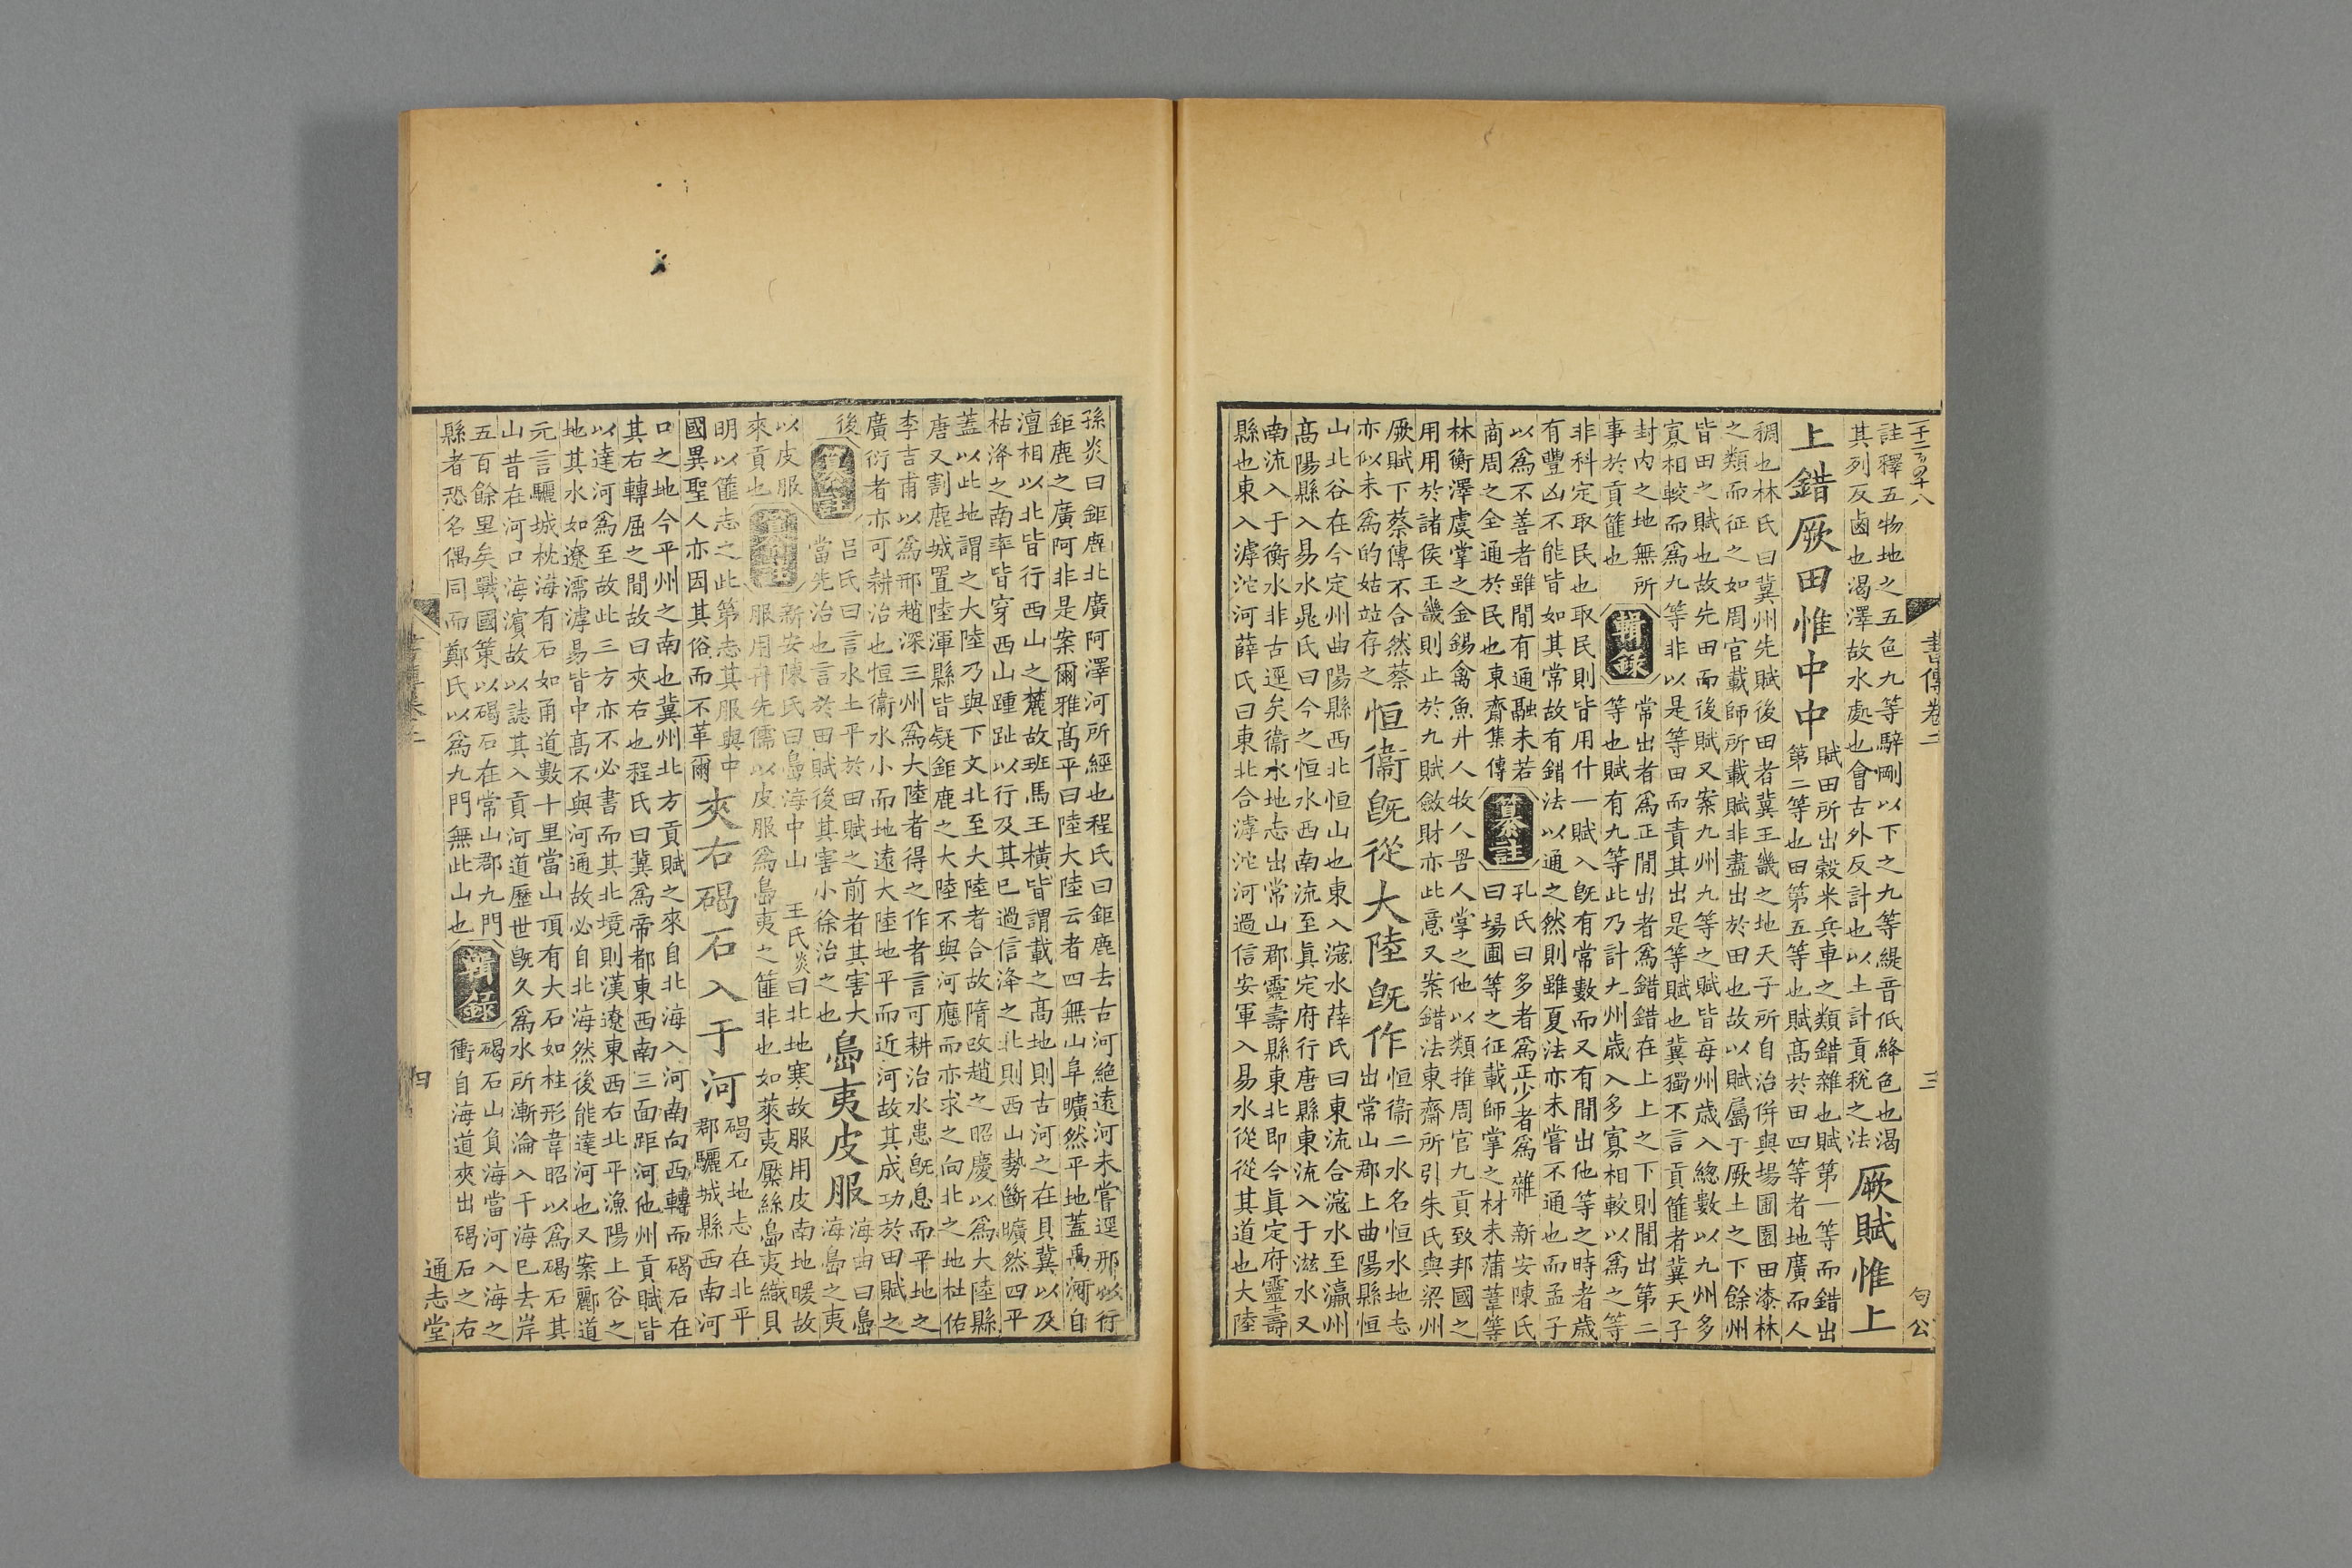 一千二百卌八
書傳卷二
三
句公
註釋五物地之五色九等騂剛以下之九等緹音低絳色也渴
其列反鹵也渴澤故水處也會古外反計也以土計貢稅之法
厥賦惟上
上錯厥田惟中中
賦田所出穀米兵車之類錯雜也賦第一等而錯出
第二等也田第五等也賦高於田四等者地廣而人
稠也林氏曰冀州先賦後田者冀王畿之地天子所自治併與場圃園田漆林
之類而征之如周官載師所載賦非盡出於田也故以賦屬于厥土之下餘州
皆田之賦也故先田而後賦又案九州九等之賦皆每州歲入總數以九州多
寡相較而爲九等非以是等田而責其出是等賦也冀獨不言貢篚者冀天子
封内之地無所
事於貢篚也
輯錄
常出者爲正閒出者爲錯錯在上上之下則閒出第二
等也賦有九等此乃計九州歲入多寡相較以爲之等
非科定取民也取民則皆用什一賦入旣有常數而又有閒出他等之時者歲
有豐凶不能皆如其常故有錯法以通之然則雖夏法亦未嘗不通也而孟子
以爲不善者雖閒有通融未若
商周之全通於民也東齋集傳
纂註
孔氏曰多者爲正少者爲雜 新安陳氏
曰場圃等之征載師掌之材未蒲葦等
林衡澤虞掌之金錫禽魚廾人牧人罟人掌之他以類推周官九貢致邦國之
用用於諸侯王畿則止於九賦斂財亦此意又案錯法東齋所引朱氏與梁州
厥賦下蔡傳不合然蔡
亦似未爲的姑站存之
恒衞旣從大陸旣作
恒衞二水名恒水地志
出常山郡上曲陽縣恒
山北谷在今定州曲陽縣西北恒山也東入滱水薛氏曰東流合滱水至瀛州
高陽縣入易水晁氏曰今之恒水西南流至眞定府行唐縣東流入于滋水又
南流入于衡水非古逕矣衞水地志出常山郡靈壽縣東北即今眞定府靈壽
縣也東入滹沱河薛氏曰東北合滹沱河過信安軍入易水從從其道也大陸
孫炎曰鉅鹿北廣阿澤河所經也程氏曰鉅鹿去古河絶遠河未嘗逕邢以行
鉅鹿之廣阿非是案爾雅高平曰陸大陸云者四無山阜曠然平地蓋禹河自
澶相以北皆行西山之麓故班馬王橫皆謂載之高地則古河之在貝冀以及
枯洚之南率皆穿西山踵趾以行及其已過信洚之北則西山勢斷曠然四平
蓋以此地謂之大陸乃與下文北至大陸者合故隋改趙之昭慶以爲大陸縣
唐又割鹿城置陸渾縣皆疑鉅鹿之大陸不與河應而亦求之向北之地杜佑
李吉甫以爲邢趙深三州爲大陸者得之作者言可耕治水患旣息而平地之
廣衍者亦可耕治也恒衞水小而地遠大陸地平而近河故其成功於田賦之
後
纂註
呂氏曰言水土平於田賦之前者其害大
當先治也言於田賦後其害小徐治之也
島夷皮服
海曲曰島
海島之夷
以皮服
來貢也
纂註
新安陳氏曰島海中山 王氏炎曰北地寒故服用皮南地暖故
服用卉先儒以皮服爲島夷之篚非也如萊夷檿絲島夷織貝
明以篚志之此第志其服與中
國異聖人亦因其俗而不革爾
夾右碣石入于河
碣石地志在北平
郡驪城縣西南河
口之地今平州之南也冀州北方貢賦之來自北海入河南向西轉而碣石在
其右轉屈之閒故曰夾右也程氏曰冀爲帝都東西南三面距河他州貢賦皆
以達河爲至故此三方亦不必書而其北境則漢遼東西右北平漁陽上谷之
地其水如遼濡滹易皆中高不與河通故必自北海然後能達河也又案酈道
元言驪城枕海有石如甬道數十里當山頂有大石如柱形韋昭以爲碣石其
山昔在河口海濱故以誌其入貢河道歷世旣久爲水所漸淪入于海已去岸
五百餘里矣戰國策以碣石在常山郡九門
縣者恐名偶同而鄭氏以爲九門無此山也
輯錄
碣石山負海當河入海之
衝自海道夾出碣石之右
四
通志堂